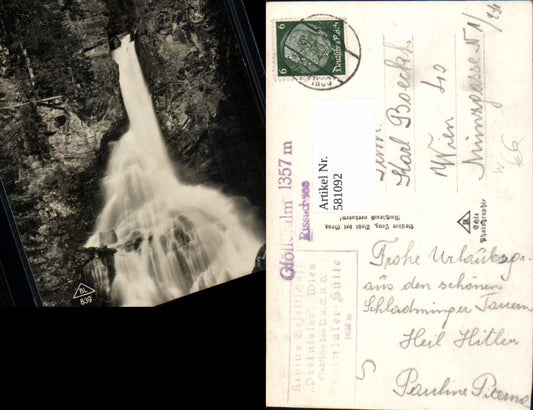 BL
839
6
6
Deutsches Reich
Herrn
Karl Boeckl
Wien 40
Münzgasse N 1/
W
66
Artikel Nr.
581092
Gföllealm 1357 m
Rissachsee
Nachdruck verboten!
Echte
Photographie
Alpine Gesellschaft
"Preintaler", Wien
Preintaler Hütte
1656 m
Frohe Urlaubsgr.
aus den schönen
Schladminger Tauern
Heil Hitler
Pauline